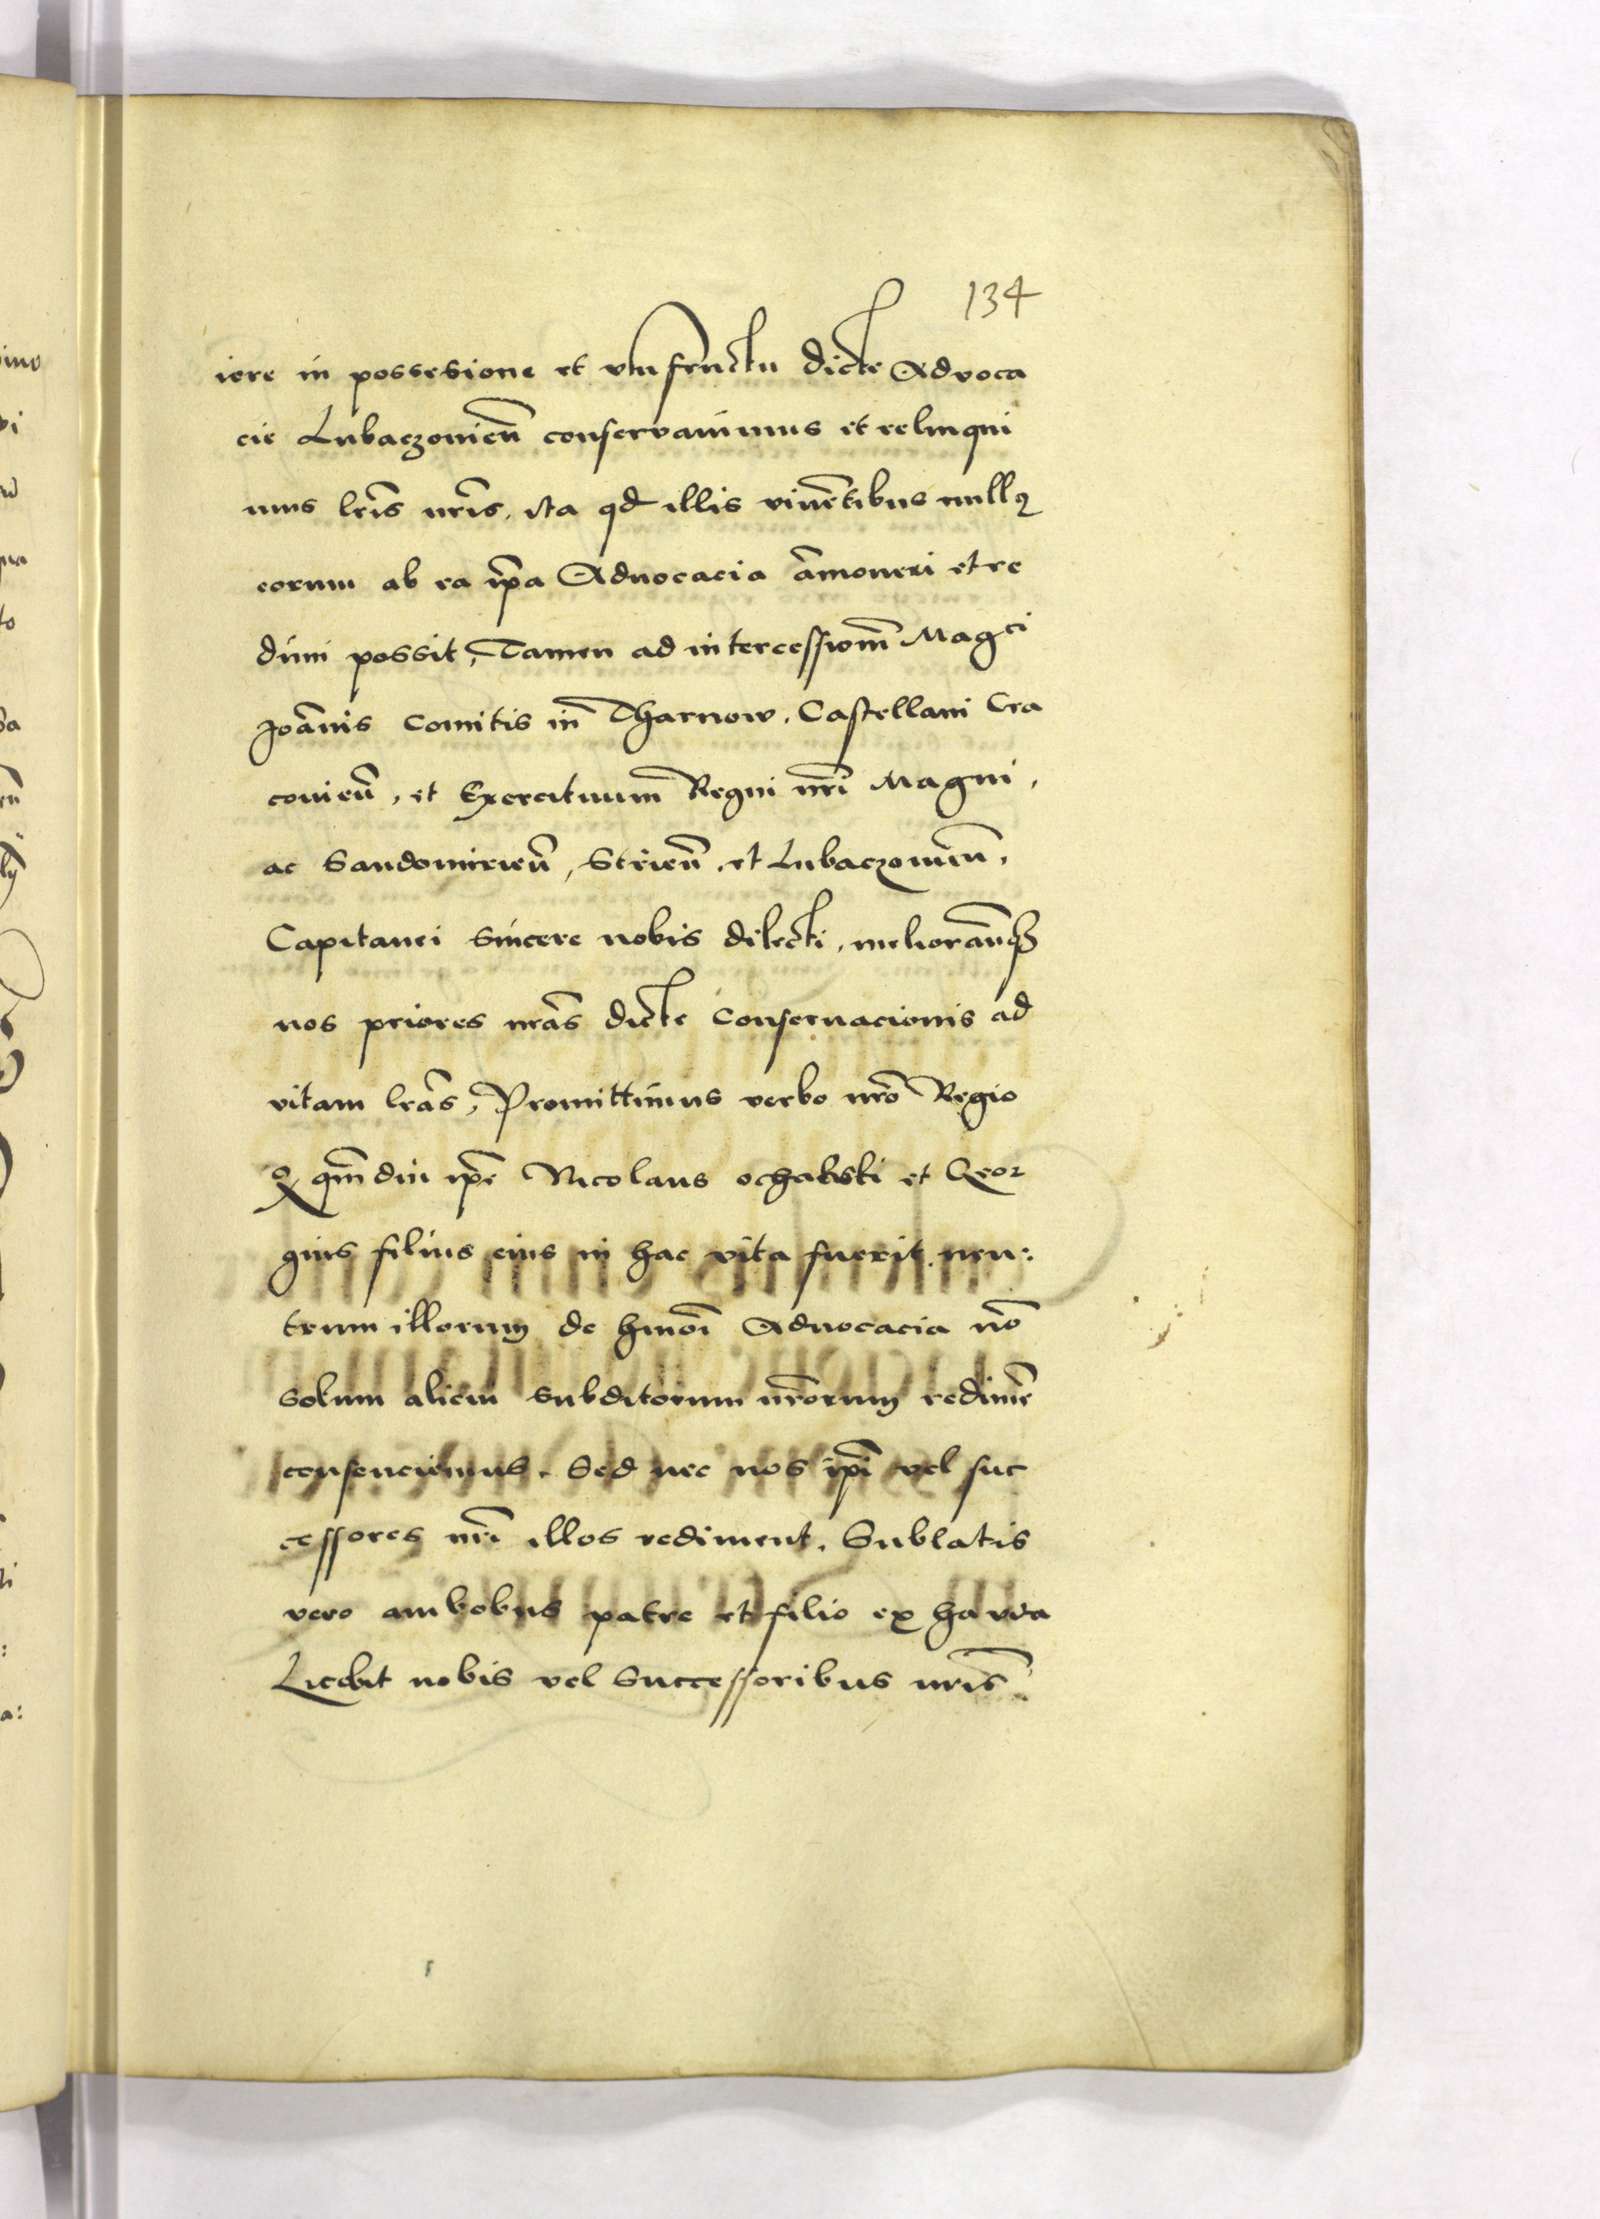 134
iore in possesione et vsufructu dicte Advoca
cie Lubaczowien̄ conservavimus et relinqui
mus lr̄is nr̄is, ita qd illis viuētibus nullꝯ
eorum ab ea ip̄a Aduocacia āmoueri et re
dimi possit, Tamen ad intercessionē̄ Magci
Joānis Comitis in Tharnow, Castellani Cra
covien̄, et Exercituum Regni nr̄i Magni,
ac Sandomirien̄, Strien̄, et Lubaczouien̄,
Capitanei sincere nobis dilecti, meliorātꝭ
nos priores nr̄as dicte Conseruacionis ad
vitam lr̄as, Promittimus verbo nr̄o Regio
qm̄diu ip̄e Nicolaus ochalski et Geor
gius filius eius in hac vita fuerit, neu:
trum illorum de hmōi Aduocacia nō
solum alicui subditorum nr̄orum redimē
consenciemus, Sed nec nos ip̄i vel suc
cessores nr̄i illos rediment, Sublatis
vero ambobus patre et filio ex ha vita
Licebit nobis vel Successoribus nr̄is